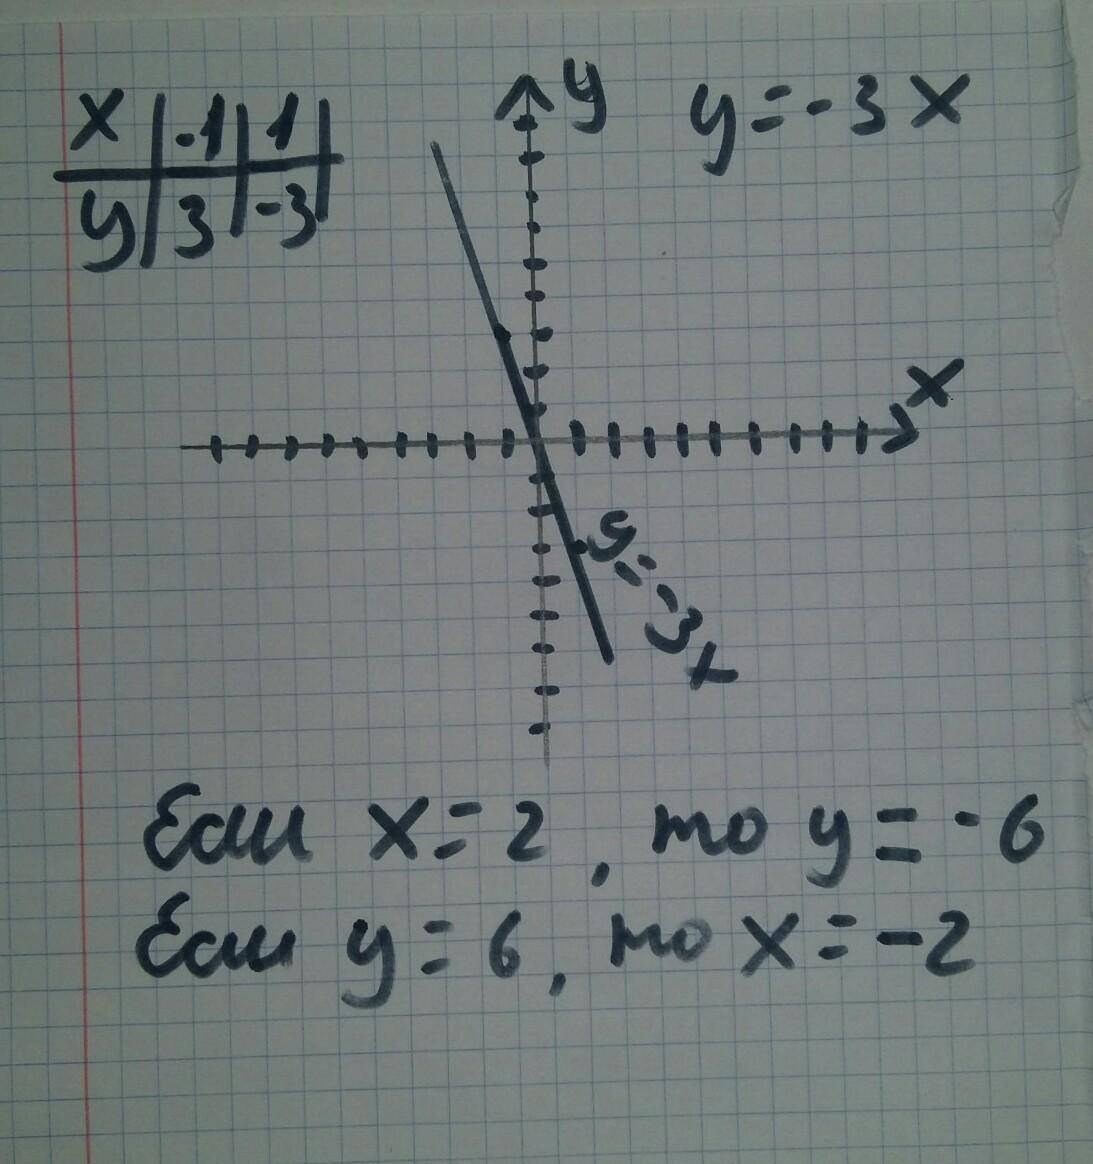 x | -1 | 1 |
y | 3 | -3 |
y
y = -3x
x
y = -3x
Если x = 2, то y = -6
Если y = 6, то x = -2